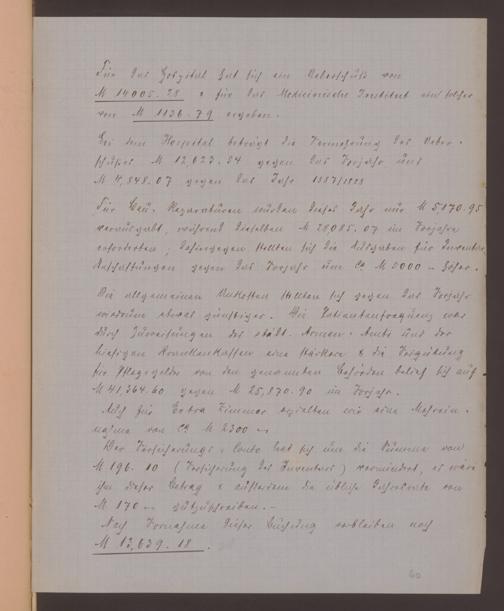 Für das Hospital hat sich ein Ueberschuss von
M 14005.28 & für das Medicinische Institut ein solcher
von M 1136.79 ergeben.
Bei dem Hospital beträgt die Vermehrung des Ueber-
schusses M 12,023.24 gegen das Vorjahr und
M 4,848.07 gegen das Jahr 1887/1888
Für Bau-Reparaturen wurden dieses Jahr nur M 5,170.95
verausgabt, während dieselben M 28,085.07 im Vorjahre
erforderten, dahingegen stellten sich die Ausgaben für Inventar
Anschaffungen gegen das Vorjahr um ca M 3000 – höher.
Die allgemeinen Unkosten stellten sich gegen das Vorjahr
wiederum etwas günstiger. Die Patientenfrequenz war
durch Zuweisungen des städt. Armen-Amts und der
hiesigen Krankenkassen eine stärkere & die Vergütung
für Pflegegelder von den genannten Behörden belief sich auf
M 41,364.60 gegen M 25,170.90 im Vorjahr.
Auch für Extra Zimmer erzielten wir eine Mehrein-
nahme von ca M 2300 –
Der Versicherungs-Conto hat sich um die Summe von
M 196.10 (Versicherung des Inventars) vermindert, es wäre
ihm dieser Betrag & ausserdem die übliche Jahresrate von
M 170 – gutzuschreiben. –
Nach Vornahme dieser Buchung verbleiben noch
M 13,639.18.
60